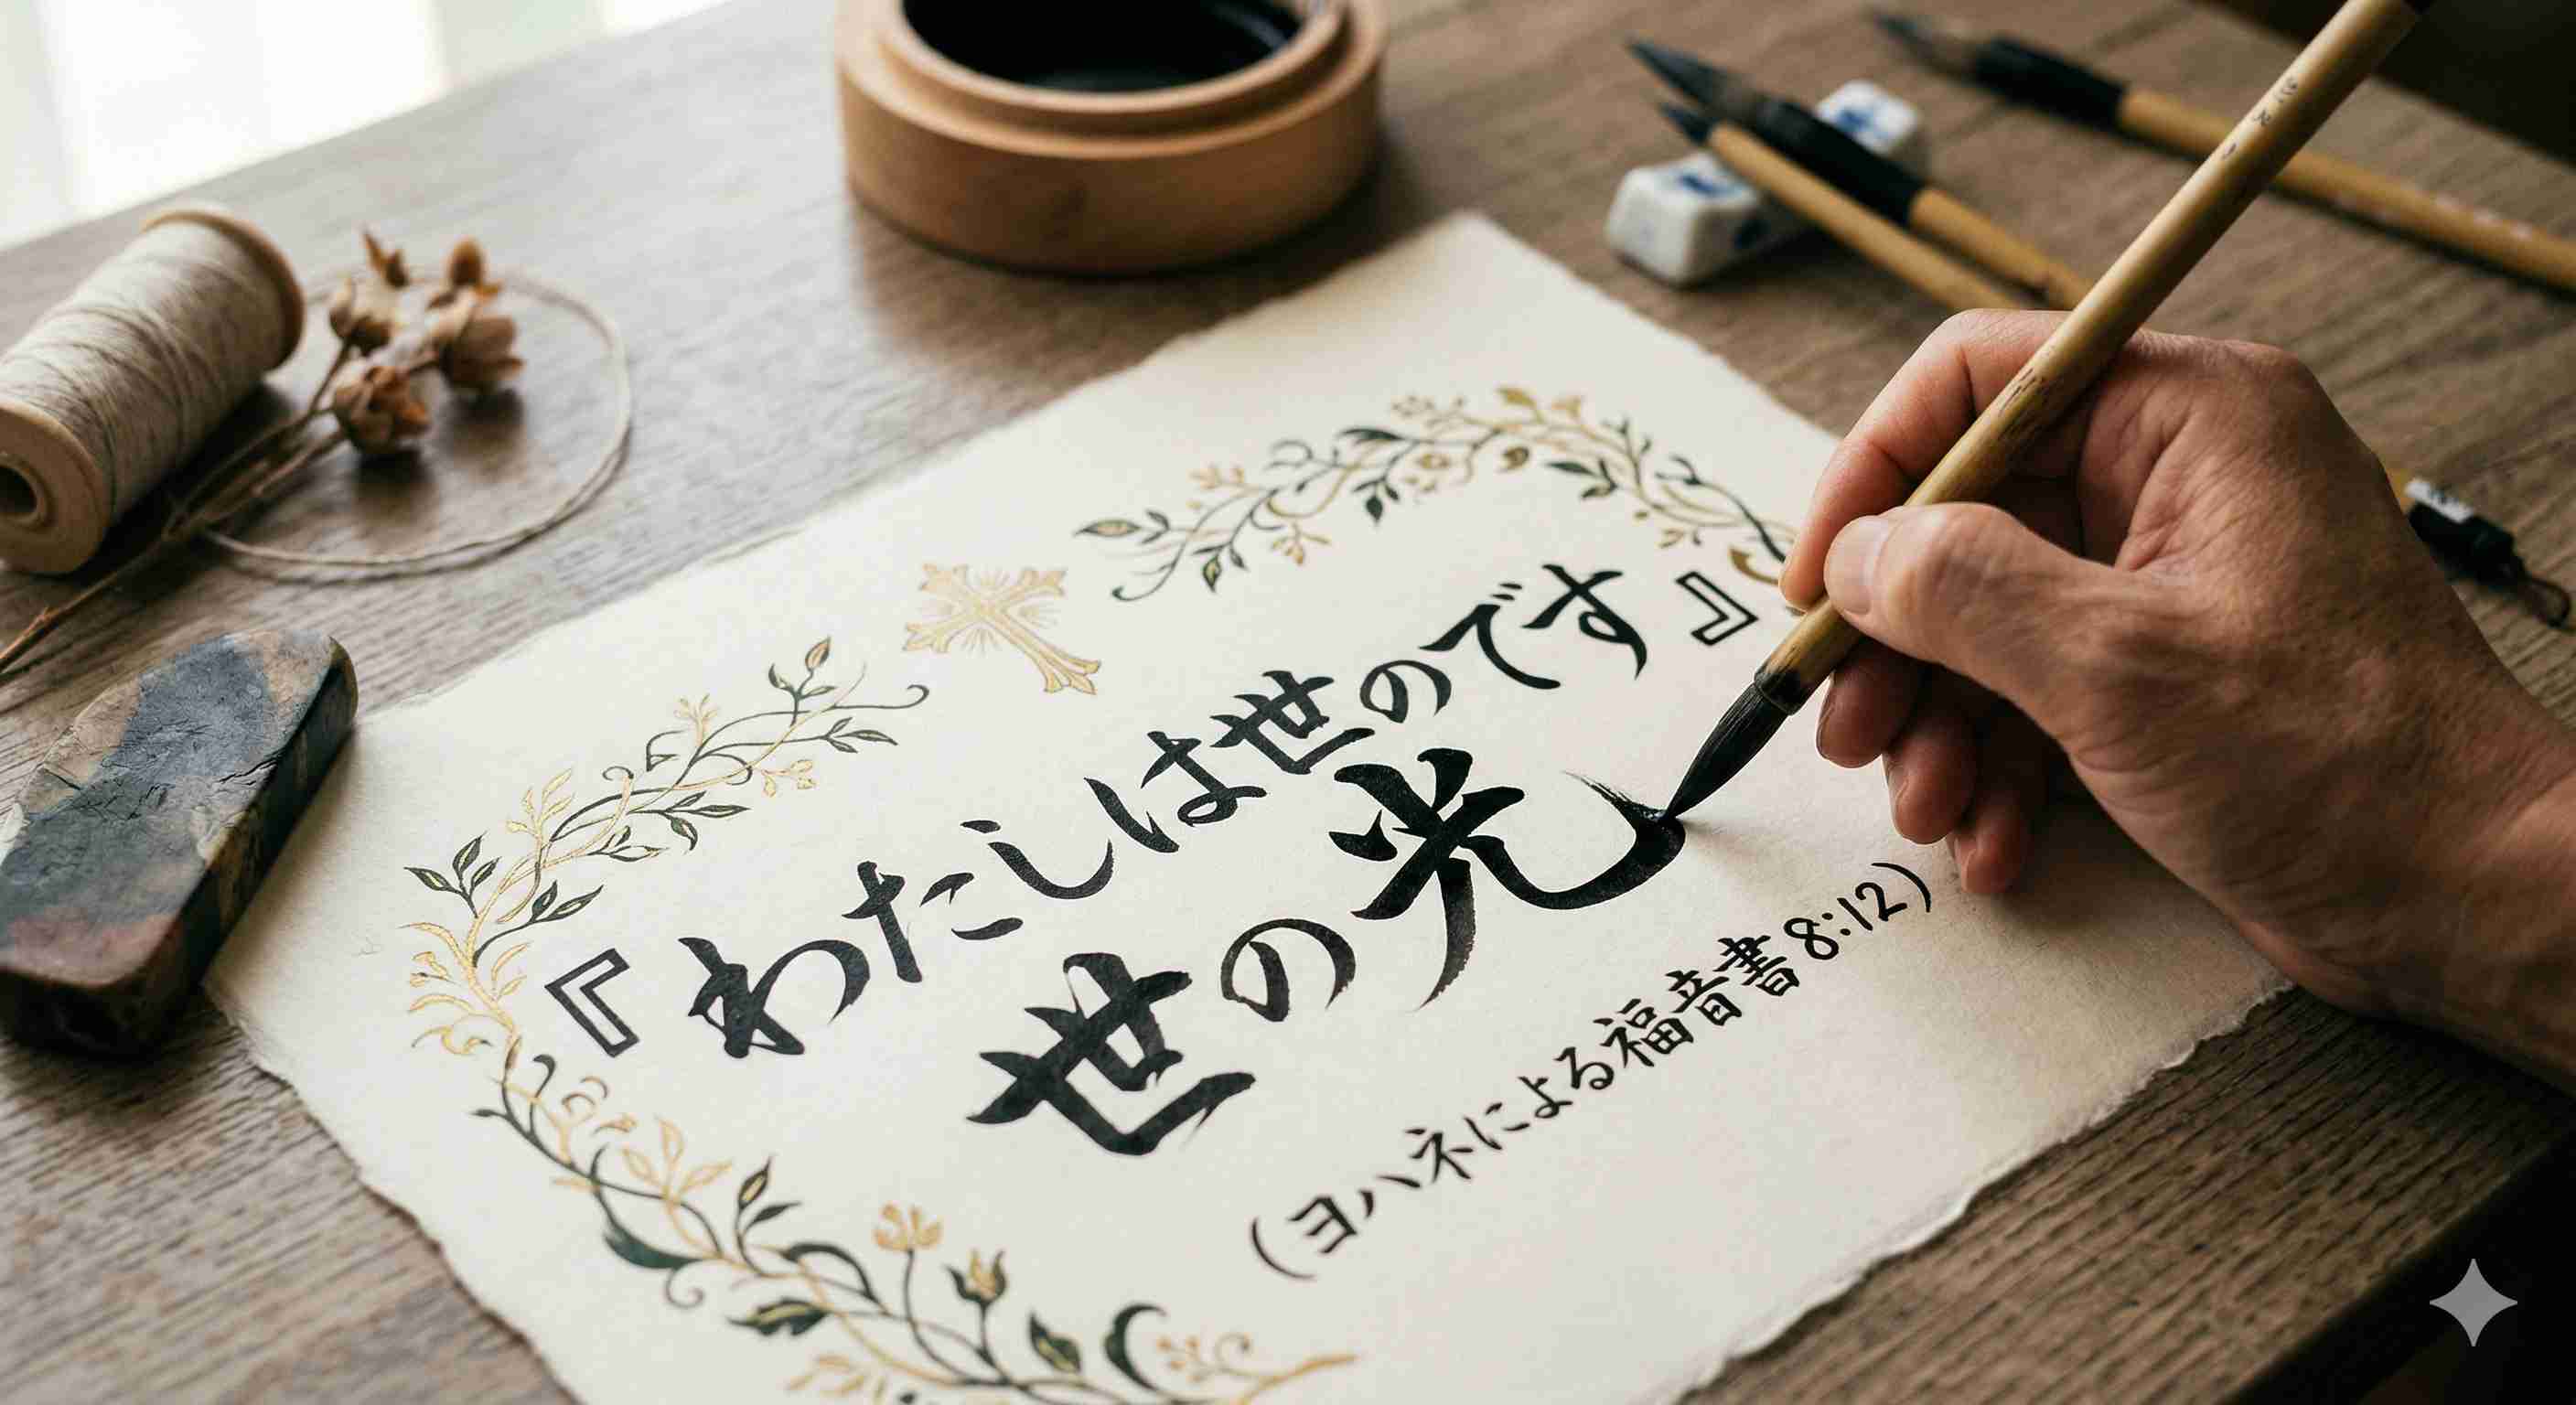 『わたしは世のです』
世の光
(ヨハネによる福音書8:12)